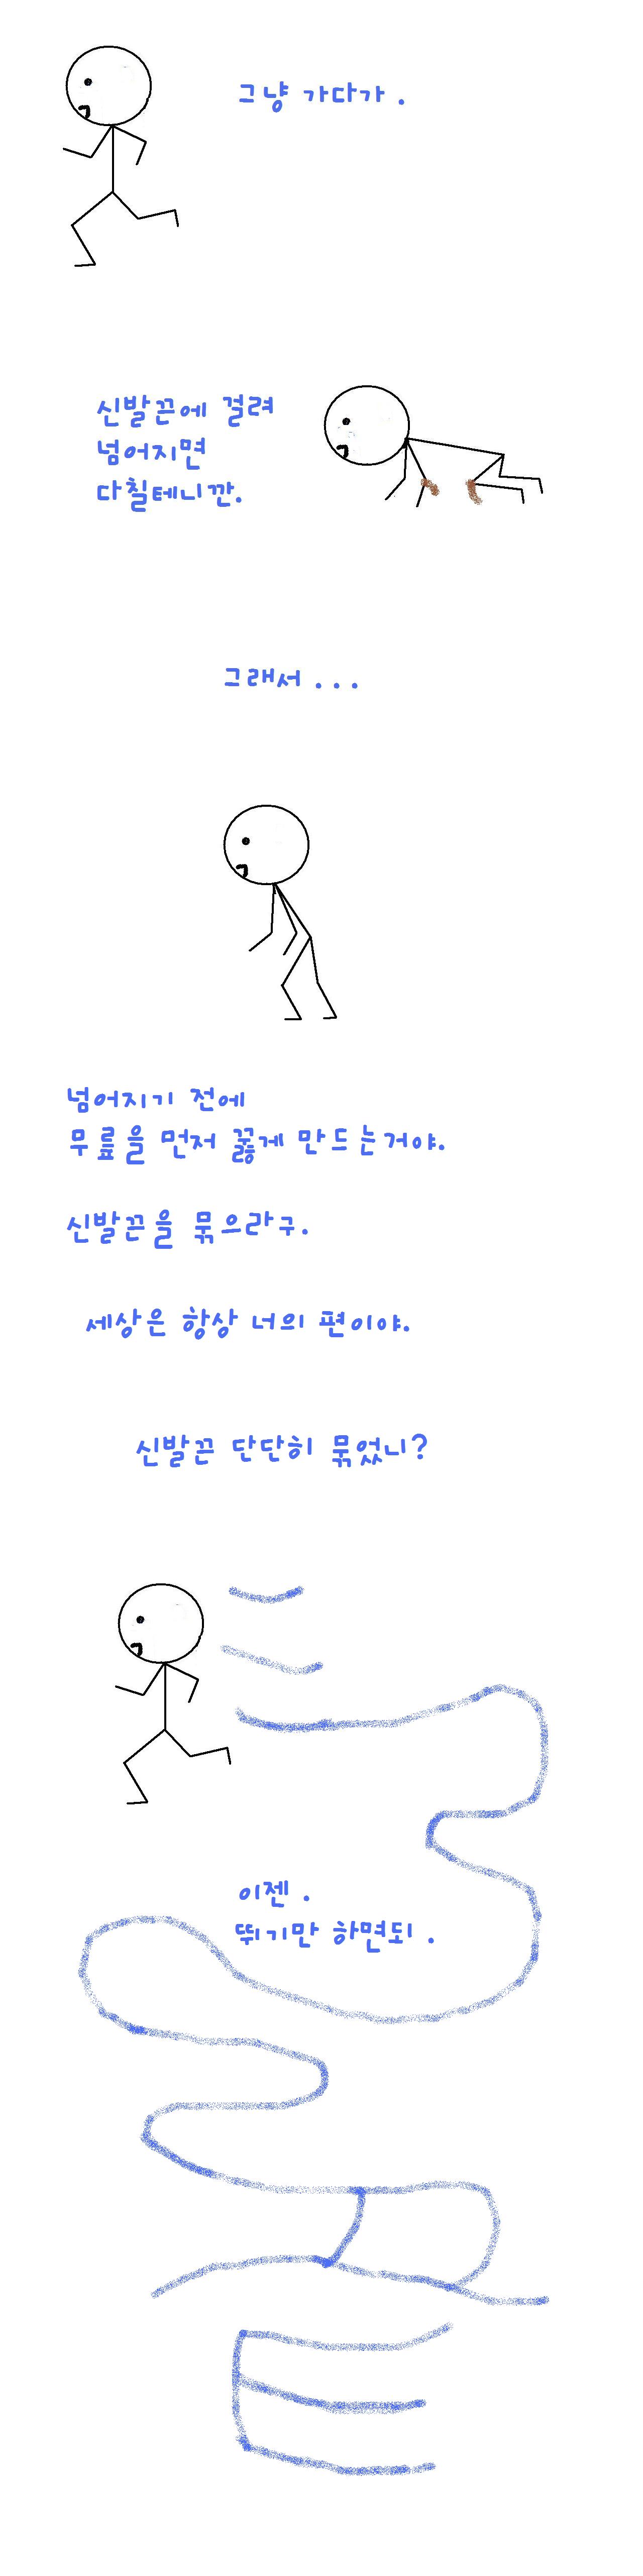 그냥 가다가 .
신발끈에 걸려
넘어지면
다칠테니깐.
그래서 . . .
넘어지기 전에
무릎을 먼저 꿇게 만드는거야.
신발끈을 묶으라구.
세상은 항상 너의 편이야.
신발끈 단단히 묶었니?
이젠 .
뛰기만 하면되 .